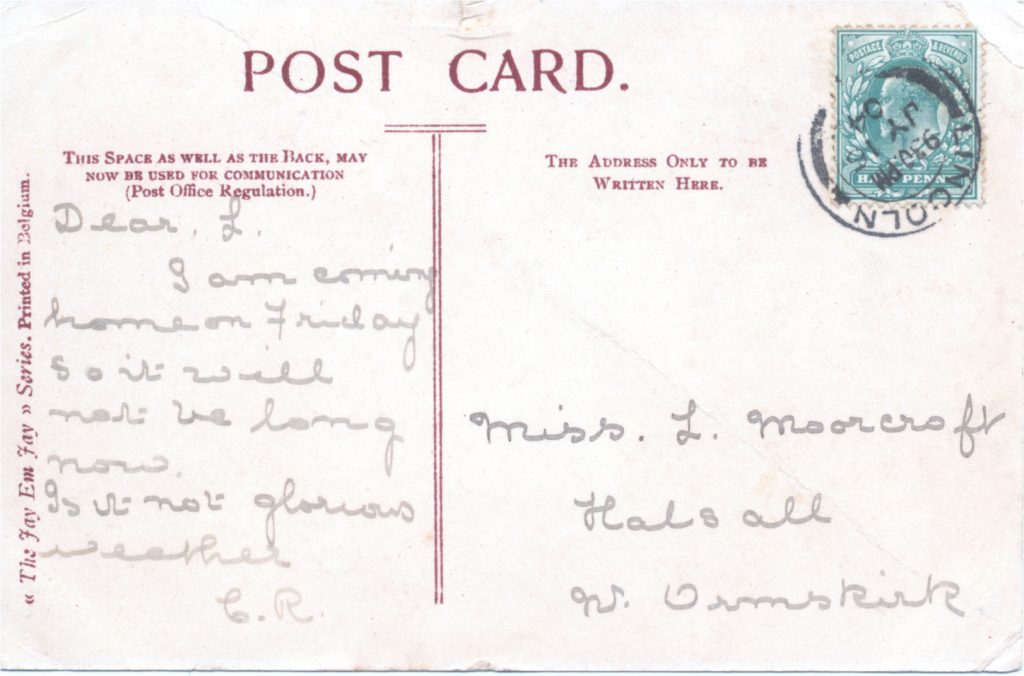 POST CARD.
THIS SPACE AS WELL AS THE BACK, MAY
NOW BE USED FOR COMMUNICATION
(Post Office Regulation.)
THE ADDRESS ONLY TO BE
WRITTEN HERE.
« The Jay Em Jay » Series. Printed in Belgium.
POSTAGE & REVENUE
HALFPENNY
LINCOLN
9 30 PM
JY 16
Dear. L.
I am coming
home on Friday
So it will
not be long
now.
Is it not glorious
weather
C.R.
Miss. L. Moorcroft
Halsall
Nr. Ormskirk